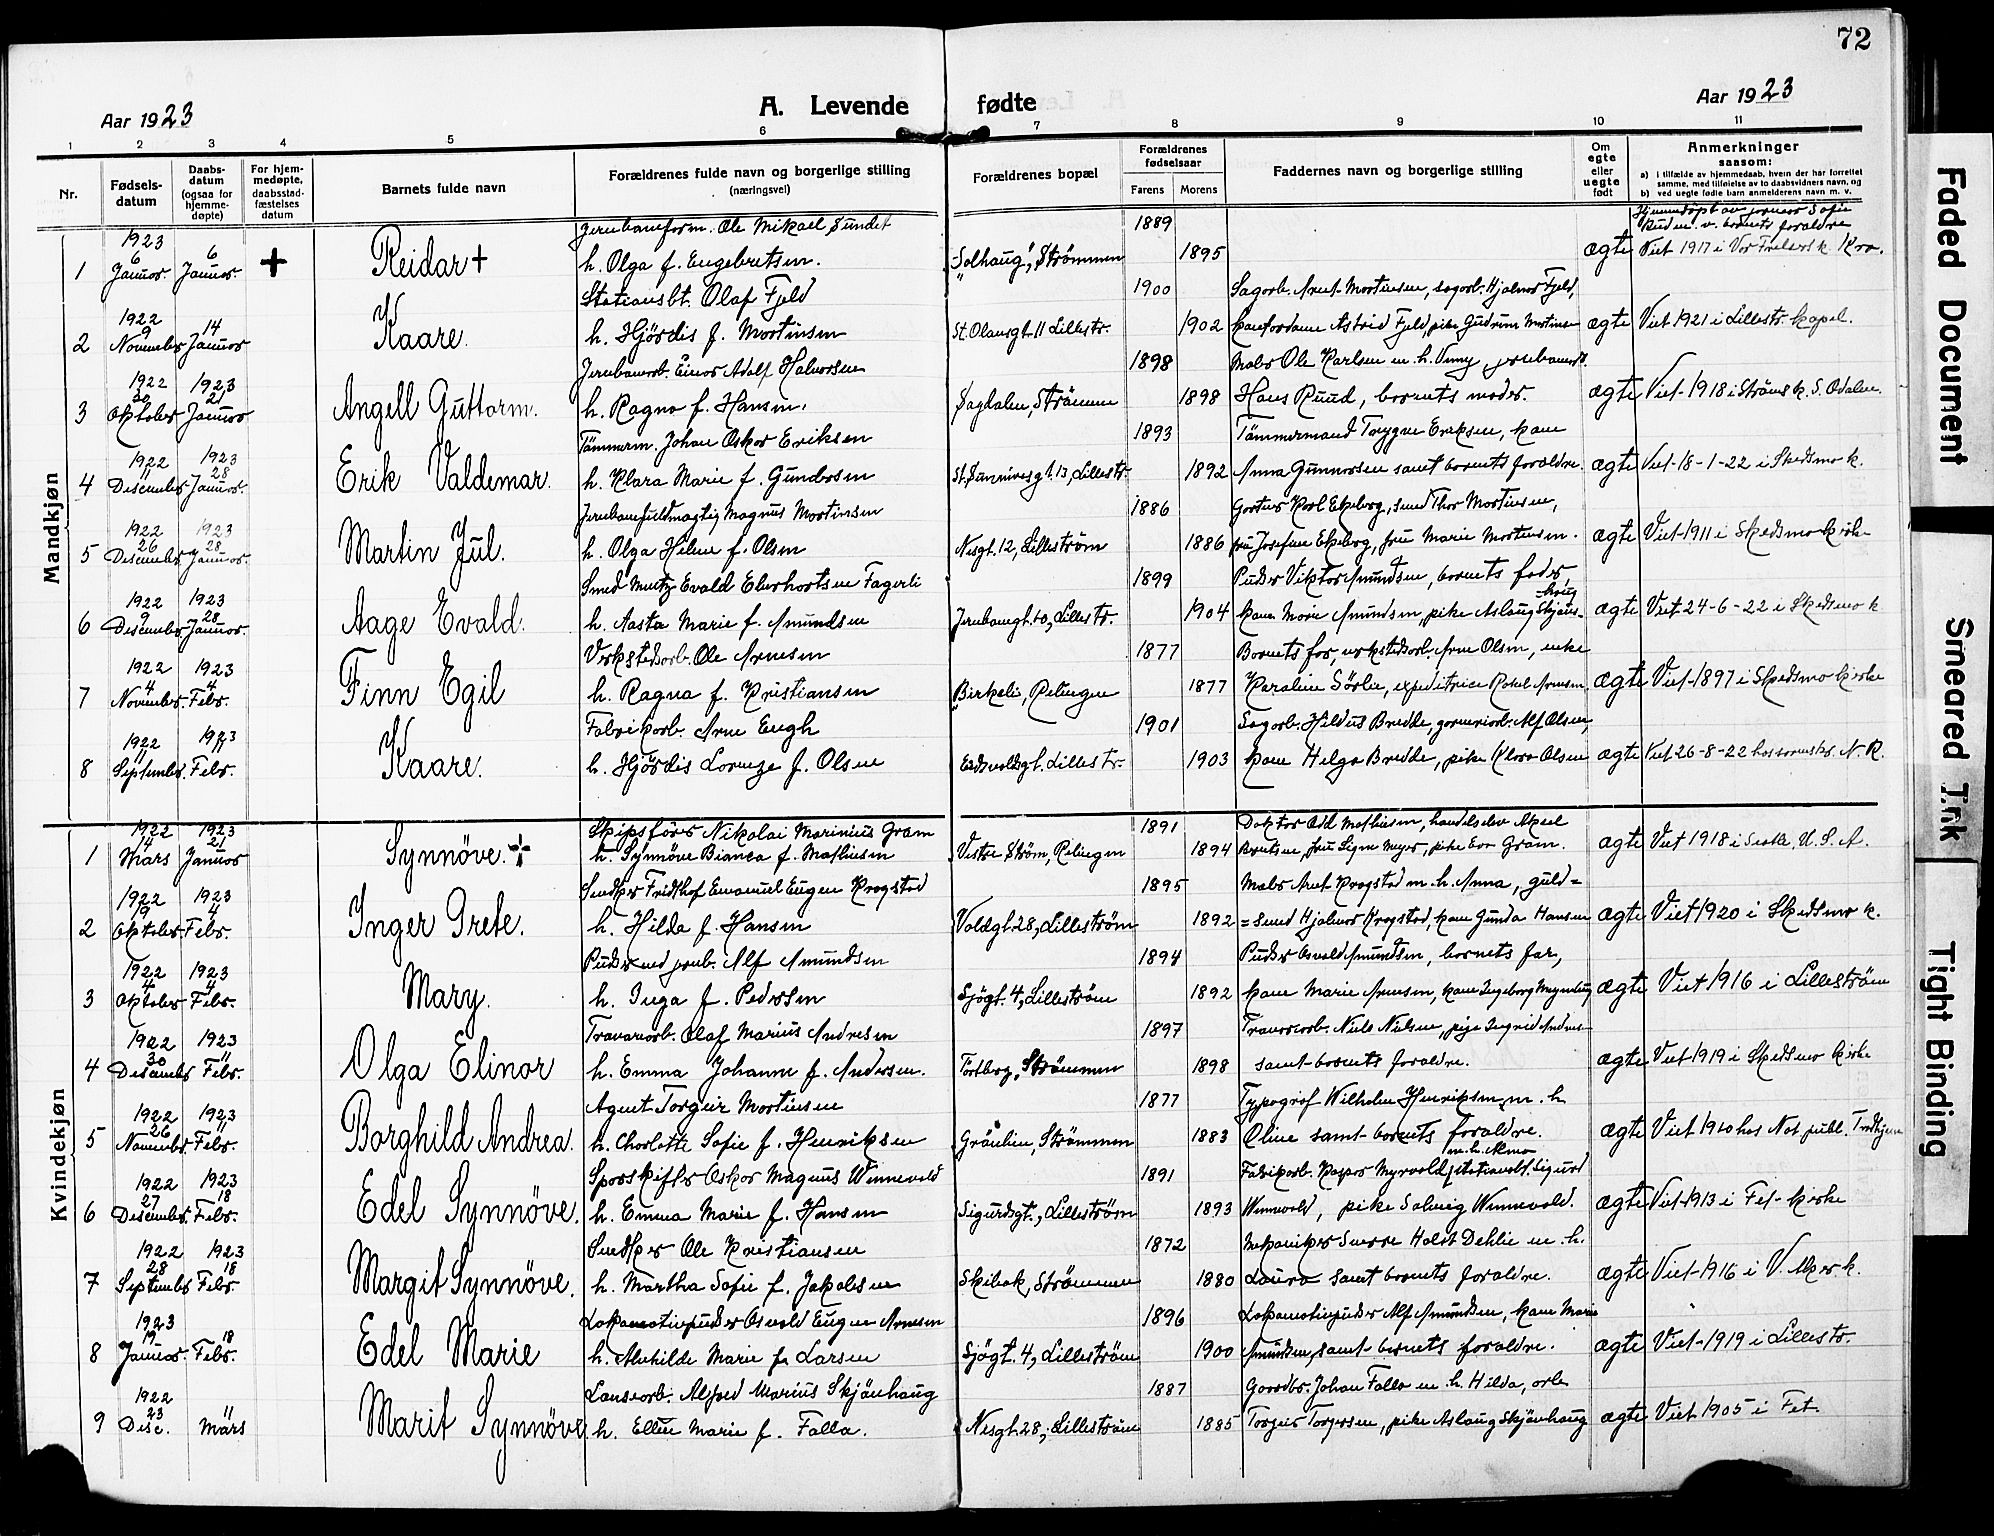 72
Aar 1923
A. Levende fødte
Aar 1923
1 2 3 4 5 6 7 8 9 10 11
Nr.
Fødsels-
datum
Daabs-
datum
(ogsaa for
hjemme-
døpte)
For hjem-
medøpte,
daabsstad-
fæstelses
datum
Barnets fulde navn
Forældrenes fulde navn og borgerlige stilling
(næringsvei)
Forældrenes bopæl
Forældrenes
fødselsaar
Farens Morens
Faddernes navn og borgerlige stilling
Om
egte
eller
uegte
født
Anmerkninger
saasom:
a) i tilfælde av hjemmedaab, hvem der har forrettet
samme, med tilføielse av to daabsvidners navn, og
b) ved uegte fødte barn anmelderens navn m. v.
Mandkjøn
1923 Jernbaneform. Ole Mikael Sundet 1889
1 6 Januar 6 Januar + Reidar + h. Olga f. Engebretsen. "Solhaug", Strømmen 1895 ægte Viet 1917 i Vor Frelsers k. Kra.
Stationsbt. Olaf Fjeld 1900 Sagarb. Arnt Martinsen, sagarb. Hjalmar Fjeld,
2 1922 9 November 14 Januar Kaare. h. Hjördis f. Martinsen St. Olavsgt. 11 Lillestr. 1902 Astrid Fjeld, pike Gudrun Martinsen ægte Viet 1921 i Lillestr. kapel.
Jernbanearb. Einar Adolf Halvorsen 1898 Maler Ole Karlsen m. h.
3 1922 30 Oktober 1923 21 Januar Angell Guttorm. h. Ragna f. Hansen. Sagdalen, Strömmen 1898 Hans Ruud, barnets moder. ægte Viet 1918 i Ströms k. S. Odalen.
Tömmerm. Johan Oskar Eriksen 1893 Tömmermand Trygve Eriksen, kone
4 1922 11 Desember 1923 28 Januar. Erik Valdemar. h. Klara Marie f. Gundersen St. Sunnivesgt. 13, Lillestr. 1892 Anna Gunnarsen samt barnets forældre. ægte Viet 18-1-22 i Skedsmo k.
Jernbanefuldmægtig Magnus Martinsen 1886 Gartner Karl Ekeberg, Smed Thor Martinsen,
5 1922 26 Desember 1923 28 Januar. Martin Jul. h. Olga Helene f. Olsen Nesgt. 12, Lilleström 1886 fru Josefine Ekeberg, fru Marie Martinsen. ægte Viet 1911 i Skedsmo kirke
Smed Evald Fagerli 1899 Pudser Viktor Amundsen, barnets fader,
6 1922 9 Desember 1923 28 Januar. Aage Evald. h. Aasta Marie f. Amundsen Jernbanegt. 10, Lillestr. 1904 kone Marie Amundsen, pike Aslaug Skjøn-haug ægte Viet 24-6-22 i Skedsmo k
Verkstedsarb. Ole Arnesen 1877 Barnets far, verkstedsarb. Arne Olsen, enke
7 1922 4 November. 1923 4 Febr. Finn Egil h. Ragna f. Kristiansen Birkeli, Relingen 1877 Karoline Sörlie, expeditrice Rakel Arnesen. ægte Viet 1897 i Skedsmo kirke
Fabrikarb. Arne Engh 1901 Sagarb. Hildus Bredde, garveriarb. Alf Olsen,
8 1922 11 September. 1923 11 Febr. Kaare. h. Hjördis Lovenze f. Olsen Eidsvoldsgt. Lillestr. 1903 kone Helga Bredde, pike Klara Olsen ægte Viet 26-8-22 hos sorenskr. N. R.
Kvindekjøn
Skipsförer Nikolai Marinius Gram 1891 Doktor Odd Mathiesen, handelselev Aksel
1 1922 14 Mars 1923 21 Januar Synnöve. + h. Synnöve Bianca f. Mathiesen Vestre Ström, Relingen 1894 fru Signe Meyer, pike Eva Gram. ægte Viet 1918 i U. S. A.
Snedker Fridthjof Emanuel Eugen Krogstad 1895 Maler Arnt Krogstad m. h. Anna, guld=
2 1922 19 Oktober 1923 4 Febr. Inger Grete. h. Hilda f. Hansen Voldgt. 28, Lilleström 1892 =smed Hjalmar Krogstad, kone Gunda Hansen ægte Viet 1920 i Skedsmo k.
Pudser ved jernb. Alf Amundsen 1894 Pudser Osvald Amundsen, barnets far,
3 1922 4 Oktober 1923 4 Febr. Mary. h. Inga f. Pedersen Sjögt. 4, Lilleström 1892 kone Marie Arnesen, kone Ingeborg ægte Viet 1916 i Lilleström
Travarearb. Olaf Marius Andresen 1897 Niels Nielsen, pige Ingrid Andres-
4 1922 30 Desember 1923 11 Febr. Olga Elinor h. Emma Johanne f. Andersen. Torsberg, Strömmen 1898 samt barnets forældre. ægte Viet 1919 i Skedsmo kirke
Agent Torgeir Martinsen 1877 Typograf Wilhelm Henriksen m. h
5 1922 26 November 1923 11 Febr. Borghild Andrea. h. Charlotte Sofie f. Henriksen Gråulien, Strömmen 1883 Oline samt barnets forældre. ægte Viet 1910 hos Not. publ. Trondhjem
Sporskifter Oskar Magnus Winnevold 1891 Fabrikarb. Kaspar Myrvold m. h. Alma, stationsbt. Sigurd
6 1922 27 Desember 1923 18 Febr. Edel Synnöve. h. Emma Marie f. Hansen Sigurdsgt., Lilleström 1893 Winnevold, pike Solveig Winnevold. ægte Viet 1913 i Fet kirke
Snedker Ole Kristiansen 1872 Mekaniker Sverre Holst Dehlie m. h.
7 1922 28 September 1923 18 Febr. Margit Synnöve. h. Martha Sofie f. Jakobsen Skibak, Strömmen 1880 Laura samt barnets forældre. ægte Viet 1916 i V. Aker k.
Lokomotivpudser Osvald Eugen Arnesen 1896 Lokomotivpudser Alf Amundsen, kone Marie
8 1923 19 Januar. 18 Febr. Edel Marie h. Mathilde Marie f. Larsen Sjögt. 4, Lilleström 1900 Amundsen, samt barnets forældre. ægte Viet 1919 i Lillestr.
Alfred Marius Skjönhaug 1887 Gaardbr. Johan Falla m. h. Hilda, arb.
9 1922 23 Dese. 11 Mars Marit Synnöve h. Ellen Marie f. Falla. Nesgt. 28, Lilleström 1885 Torger Torgersen, pike Aslaug Skjönhaug ægte Viet 1905 i Fet.
Faded Document
Smeared Ink
Tight Binding